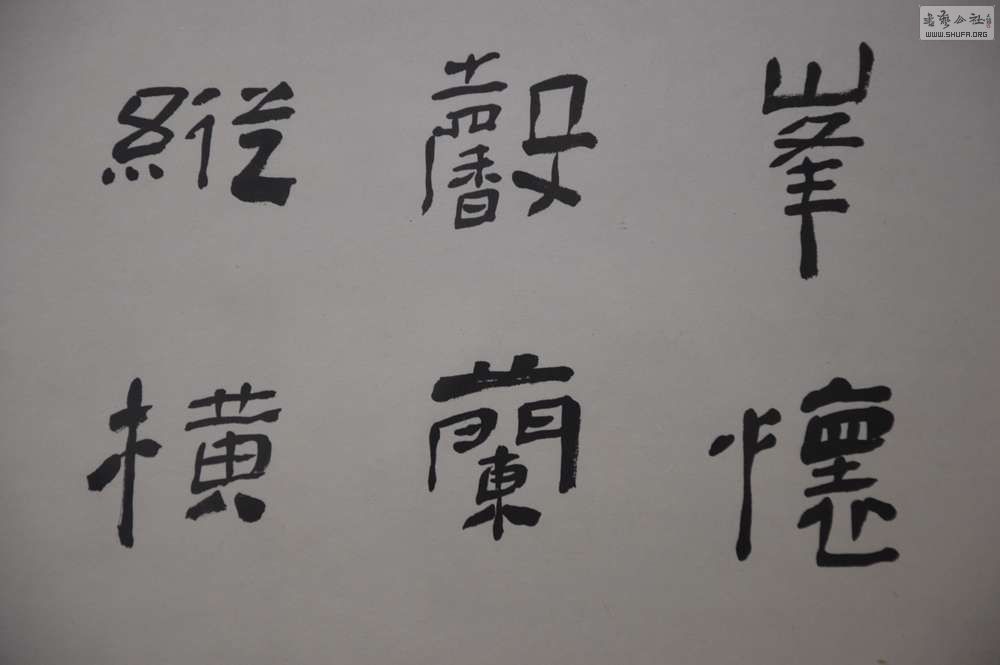 峯懷
馨蘭
縱橫
書藝公社
WWW.SHUFA.ORG